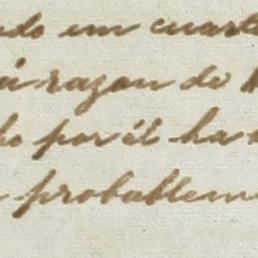 ado em cuarto
á razon de
ho por él ha
probableme